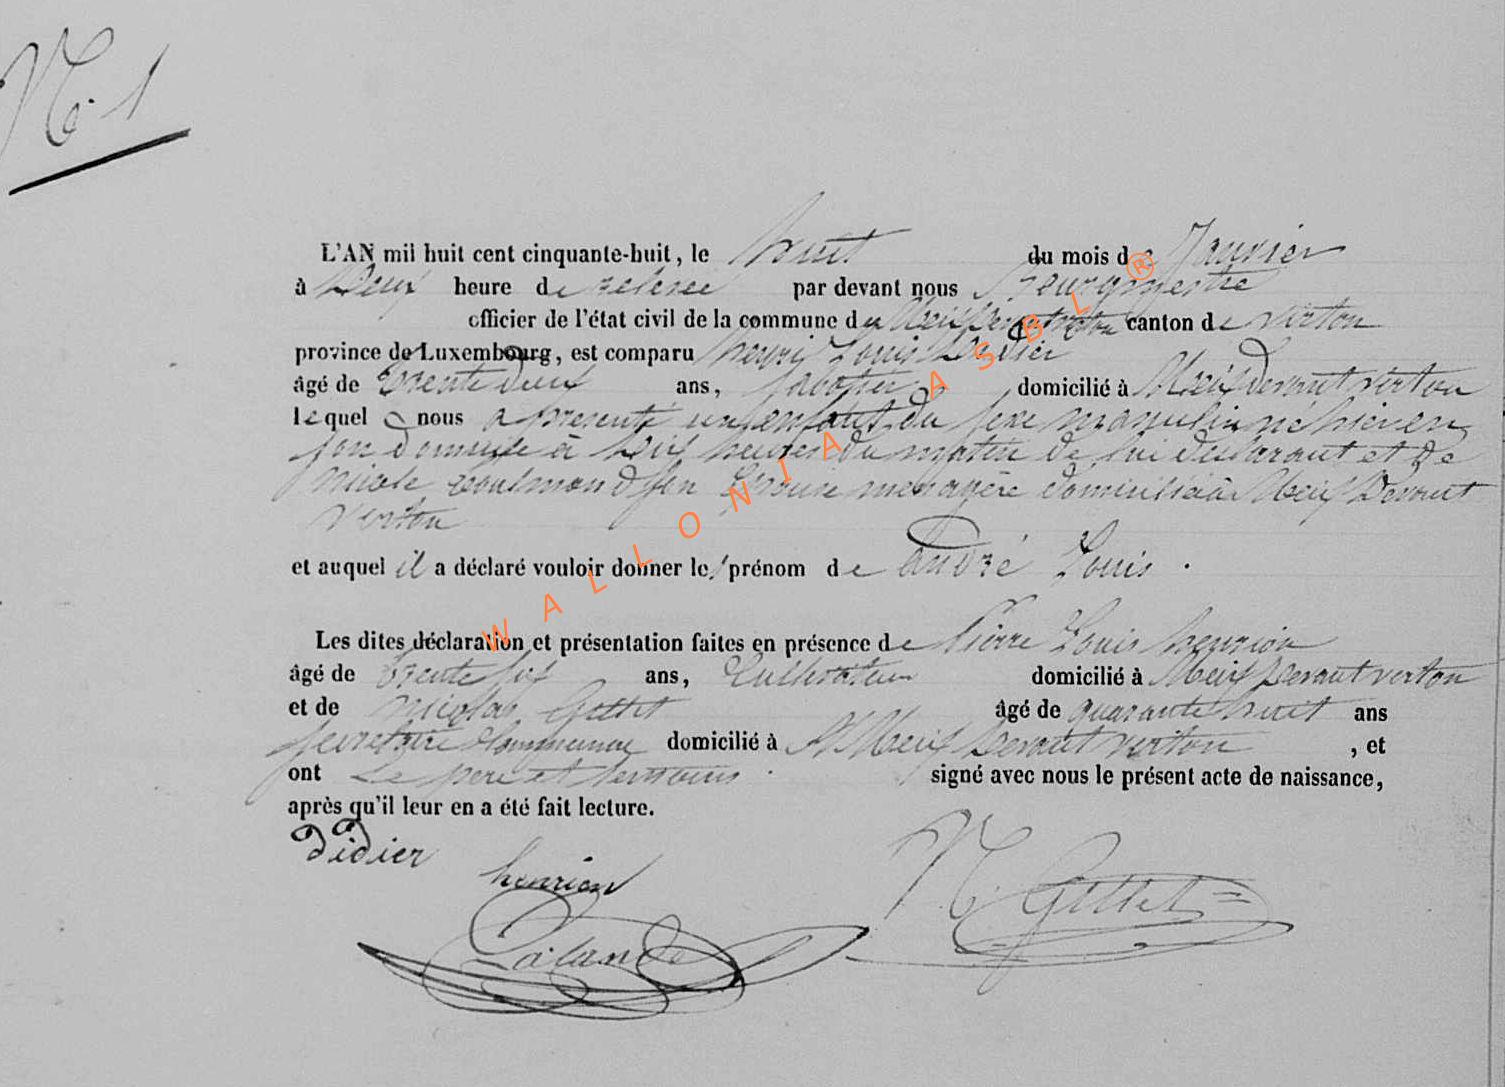 No. 1
L'AN mil huit cent cinquante-huit, le huit du mois de Janvier
à Deux heure de relevée par devant nous Bourgmestre
officier de l'état civil de la commune de Meix Devant virton canton de virton
province de Luxembourg, est comparu henri Louis Didier
âgé de Trente deux ans, sabotier domicilié à Meix Devant virton
lequel nous a présenté un enfant du sexe masqulin né hier en
son domicile à heures du matin de lui déclarant et de
nicole son Epouse menagère domiciliée à Meix Devant
virton
et auquel il a déclaré vouloir donner les prénom de André Louis.
Les dites déclaration et présentation faites en présence de Pierre Louis henrion
âgé de Trente six ans, Cultivateur domicilié à Meix Devant virton
et de nicolas Gettet âgé de quarante huit ans
secretaire Communal domicilié à Meix Devant virton, et
ont Le père et temoins signé avec nous le présent acte de naissance,
après qu'il leur en a été fait lecture.
didier
henrion
N. Gettet
Lalande
WALLONIA ASBL ®